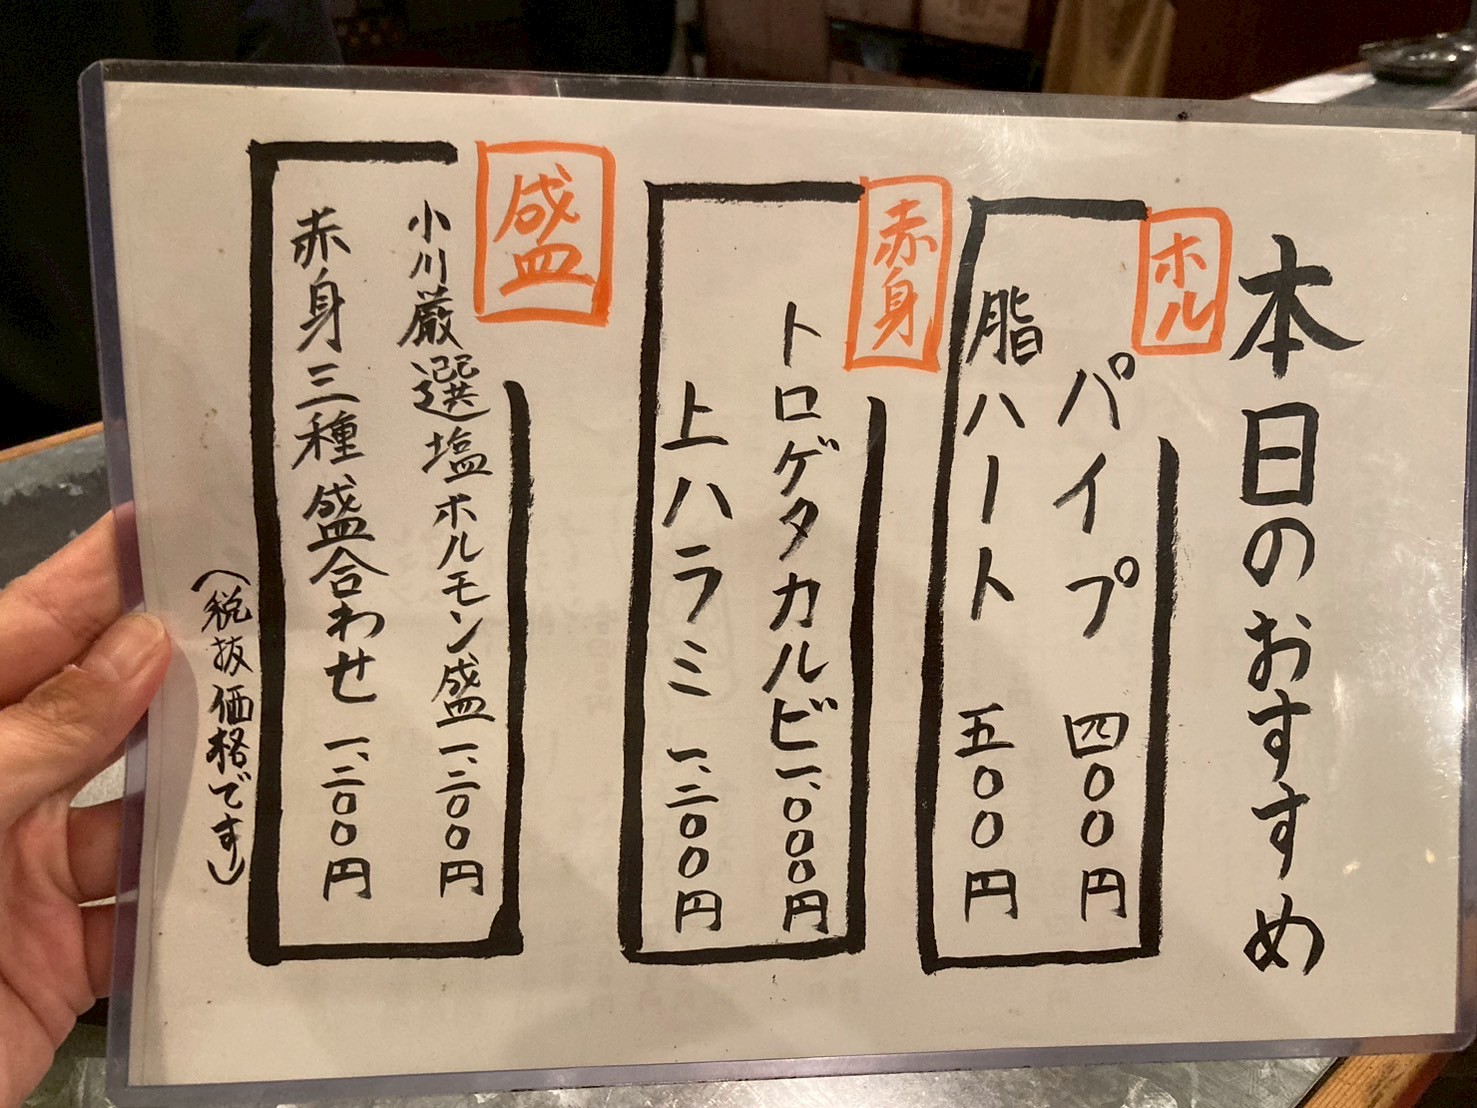 本日のおすすめ
ホル
パイプ 四〇〇円
脂ハート 五〇〇円
赤身
トロゲタカルビ 一、〇〇〇円
上ハラミ 一、二〇〇円
盛
小川厳選塩ホルモン盛 一、二〇〇円
赤身三種盛合わせ 一、二〇〇円
(税抜価格です)